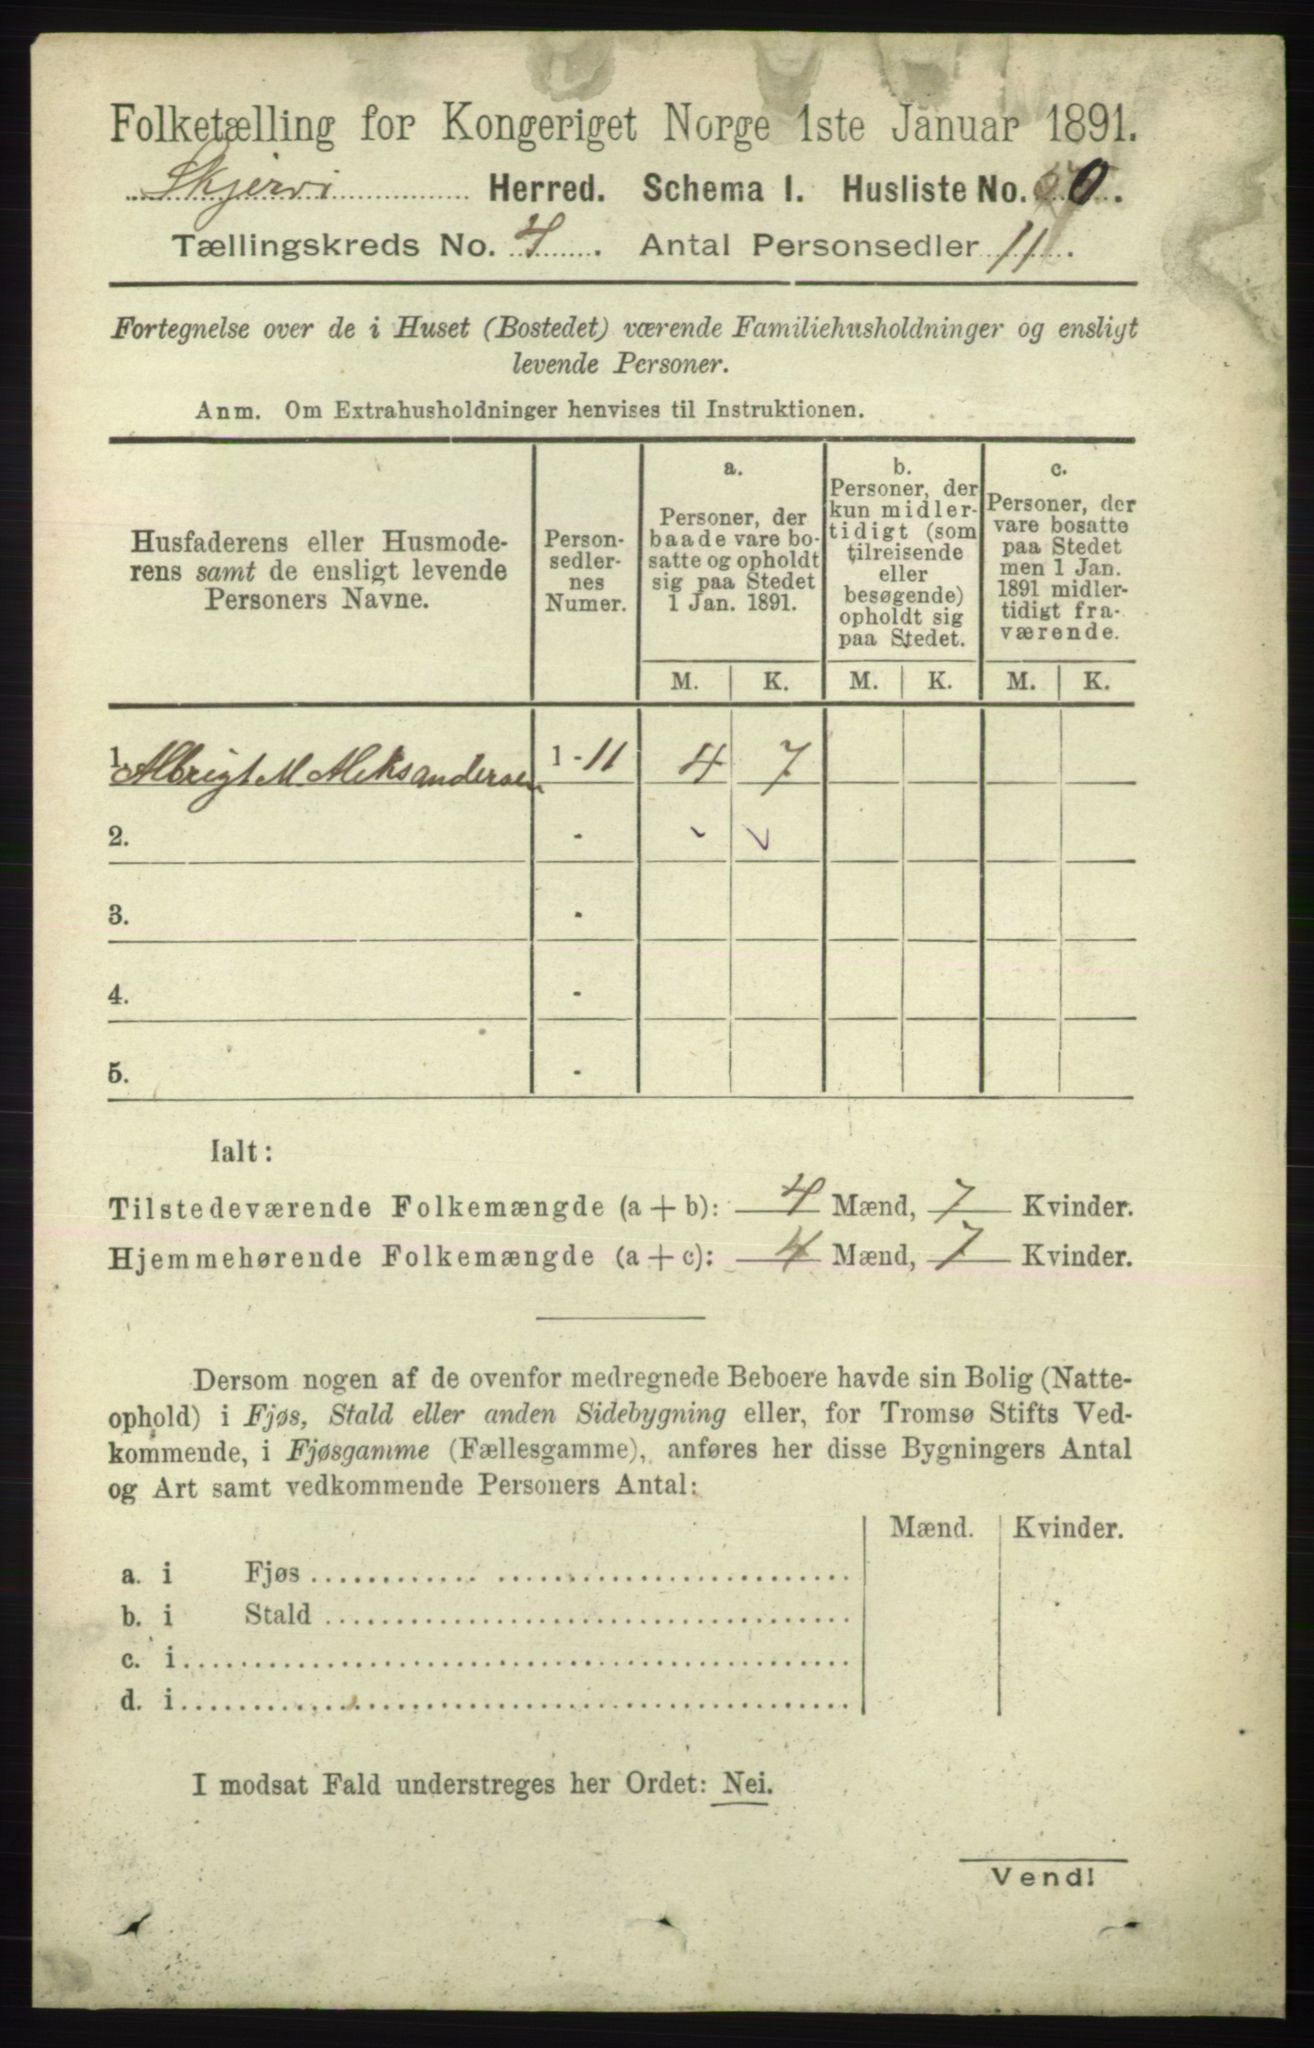 Folketælling for Kongeriget Norge 1ste Januar 1891.
Skjervø Herred. Schema I. Husliste No. 
Tællingskreds No. 4. Antal Personsedler 11.
Fortegnelse over de i Huset (Bostedet) værende Familiehusholdninger og ensligt
levende Personer.
Anm. Om Extrahusholdninger henvises til Instruktionen.
Husfaderens eller Husmode-
rens samt de ensligt levende
Personers Navne.
Person-
sedler-
nes
Numer.
a.
Personer, der
baade vare bo-
satte og opholdt
sig paa Stedet
1 Jan. 1891.
b.
Personer, der
kun midler-
tidigt (som
tilreisende
eller
besøgende)
opholdt sig
paa Stedet.
c.
Personer, der
vare bosatte
paa Stedet
men 1 Jan.
1891 midler-
tidigt fra-
værende.
M. K. M. K. M. K.
1. Albrigt M. Aleksandersen 1 - 11 4 7
2. -
3. -
4. -
5. -
Ialt:
Tilstedeværende Folkemængde (a + b): 4 Mænd, 7 Kvinder.
Hjemmehørende Folkemængde (a + c): 4 Mænd, 7 Kvinder.
Dersom nogen af de ovenfor medregnede Beboere havde sin Bolig (Natte-
ophold) i Fjøs, Stald eller anden Sidebygning eller, for Tromsø Stifts Ved-
kommende, i Fjøsgamme (Fællesgamme), anføres her disse Bygningers Antal
og Art samt vedkommende Personers Antal:
Mænd. Kvinder.
a. i Fjøs
b. i Stald
c. i
d. i
I modsat Fald understreges her Ordet: Nei.
Vend!